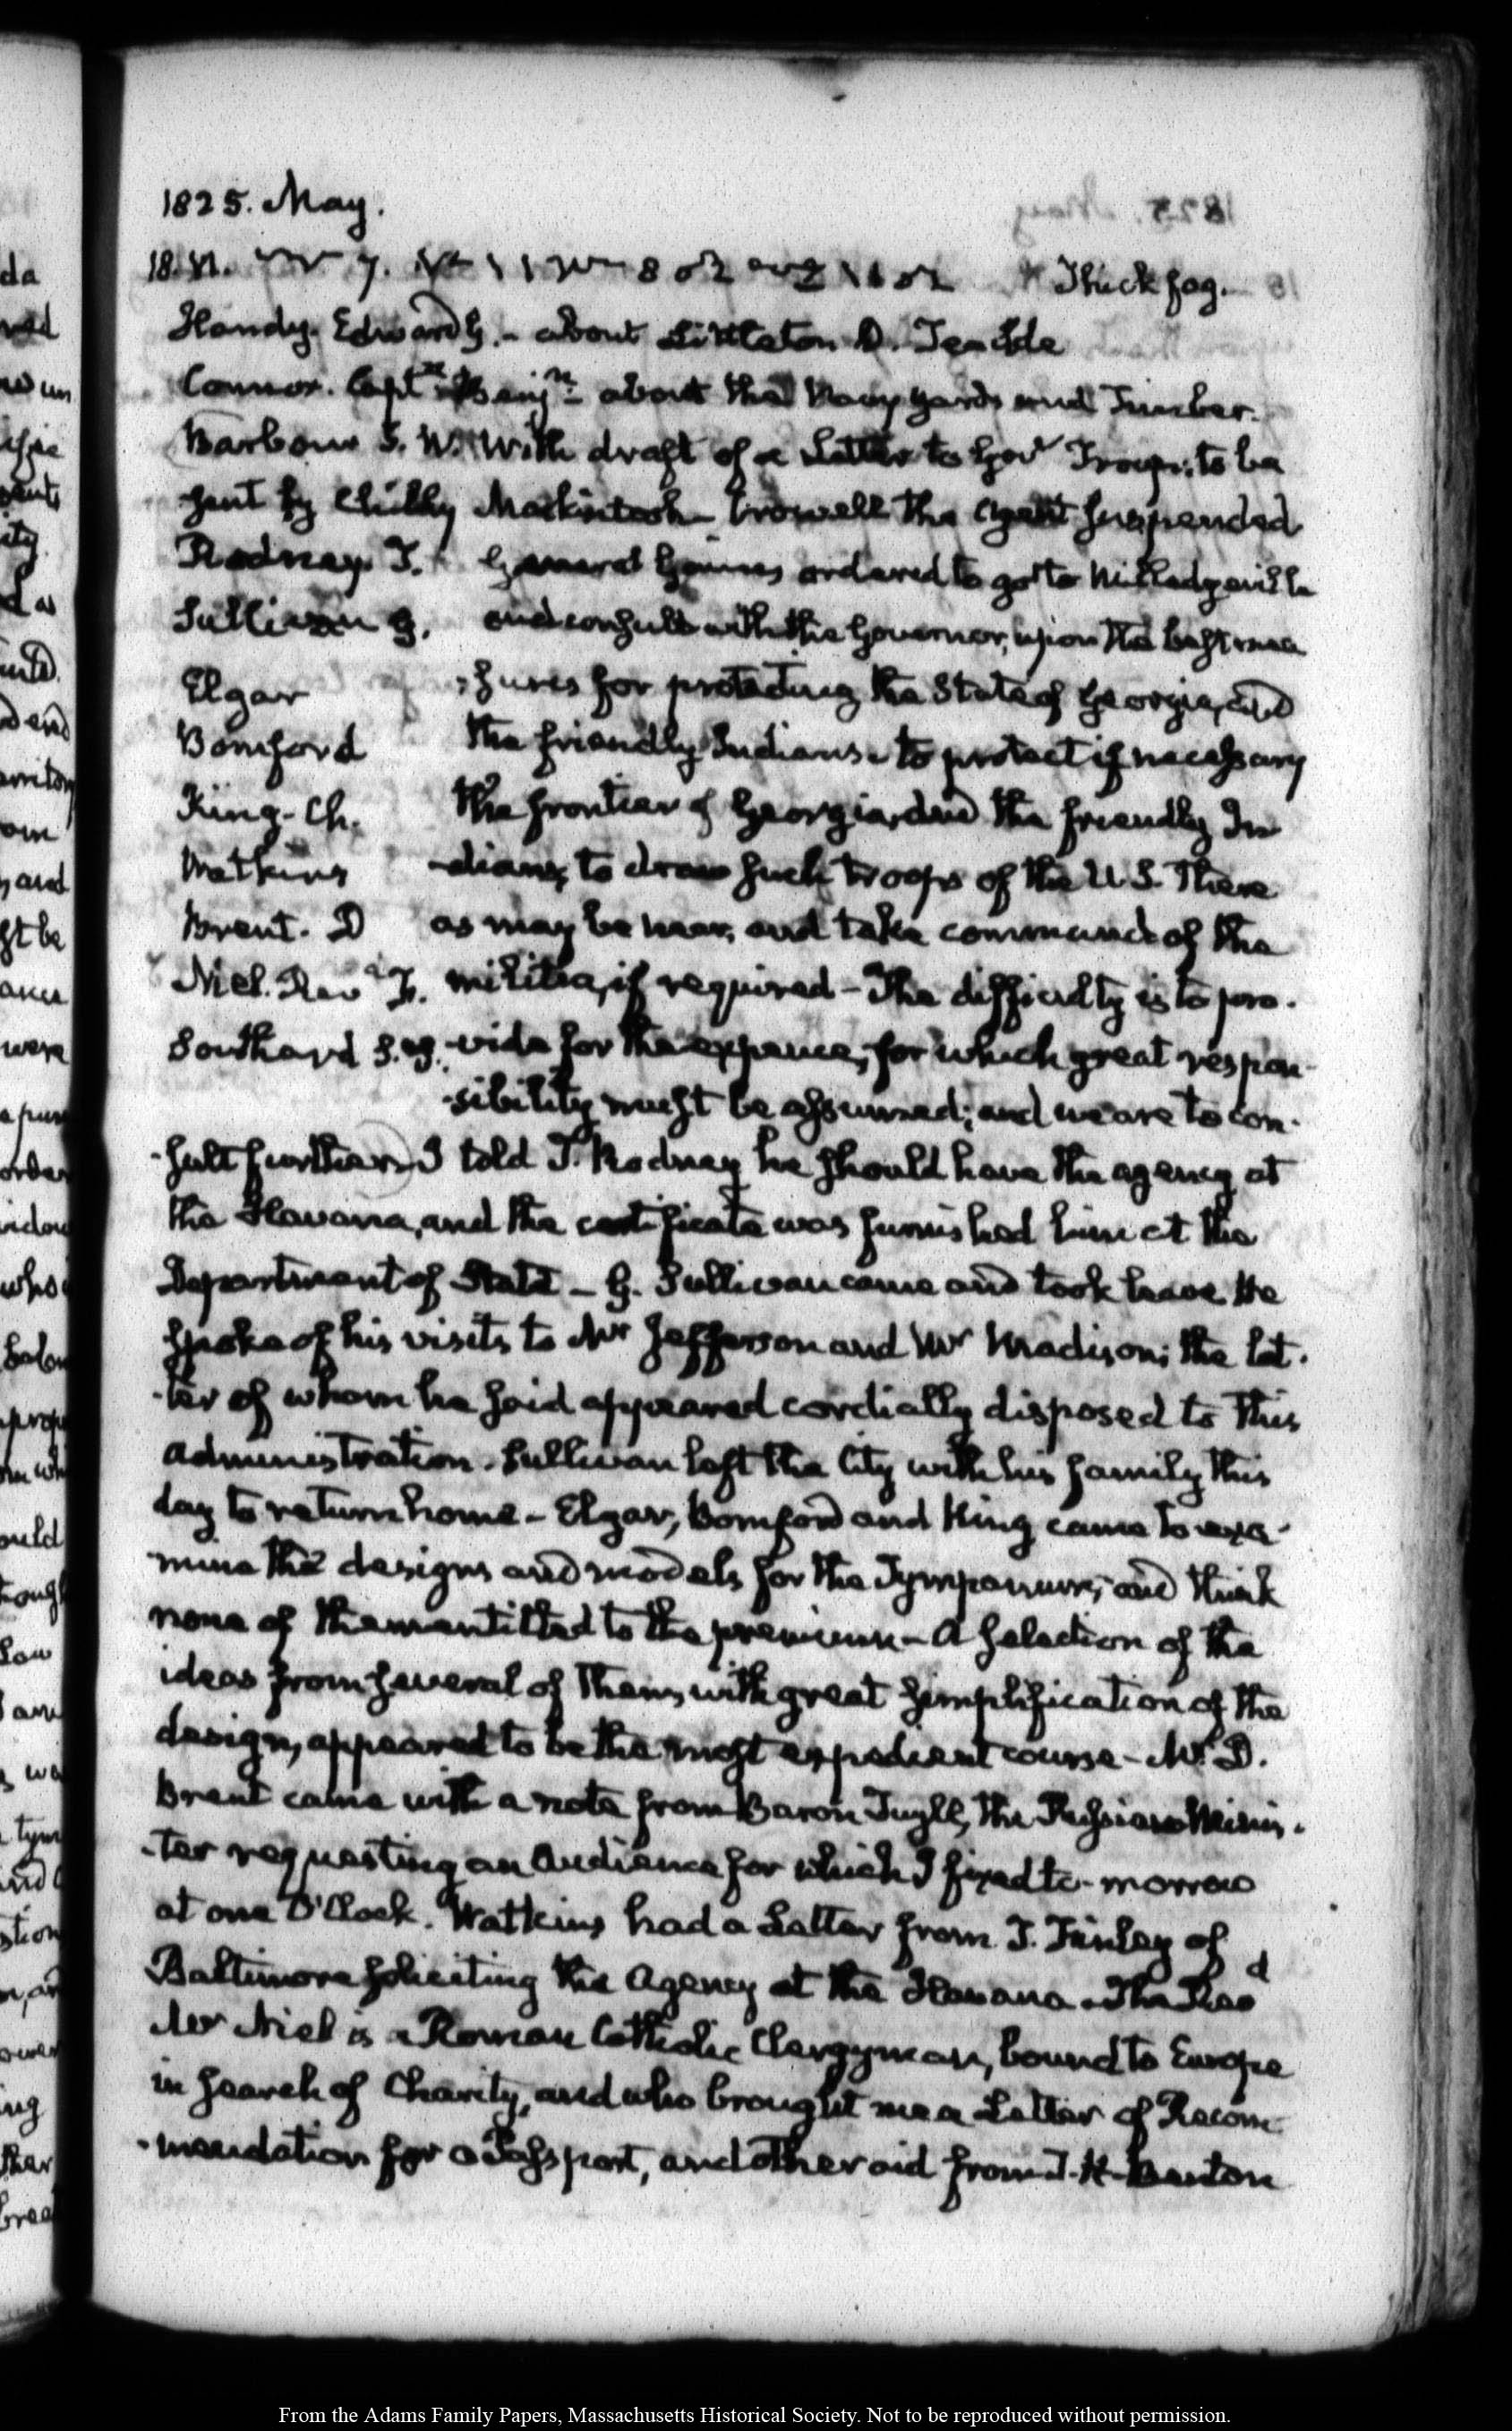 1825. May.
18. VI. 7. Thick fog.
Handy. Edward G. - about Littleton D. Teackle
Connor. Captn. Benjn. about the Navy yards and Timber.
Barbour S. W. With draft of a Letter to Govr Troup; to be
sent by Chilly Mackintosh - Crowell the Agent suspended
Rodney. T. General Gaines ordered to go to Milledgeville
Sullivan G. and consult with the Governor, upon the best mea
Elgar -sures for protecting the State of Georgia, and
Bomford the friendly Indians - to protect if necessary
King. Ch. the frontier of Georgia, and the friendly In
Watkins -dians, to draw such troops of the U.S. there
Brent. D as may be near, and take command of the
Niel. Revd F. militia, if required - The difficulty is to pro-
Southard S. -vide for the expence, for which great respon-
-sibility must be assumed; and we are to con-
-sult further. I told T. Rodney he should have the agency at
the Havana, and the certificate was furnished him at the
Department of State - G. Sullivan came and took leave He
spoke of his visits to Mr Jefferson and Mr Madison; the lat-
-ter of whom he said appeared cordially disposed to this
administration. Sullivan left the City with his family this
day to return home - Elgar, Bomford and King came to exa-
-mine the designs and models for the Tympanum; and think
none of them entitled to the premium - A selection of the
ideas from several of them, with great simplification of the
design, appeared to be the most expedient course - Mr. D.
Brent came with a note from Baron Tuyll, the Russian Minis-
-ter requesting an Audience for which I fixed to-morrow
at one O'Clock. Watkins had a Letter from J. Finley of
Baltimore soliciting the Agency at the Havana. The Revd
Mr Niel is a Roman Catholic Clergyman, bound to Europe
in search of Charity, and who brought me a Letter of Recom
-mendation for a Passport, and other aid from T. H. Benton
From the Adams Family Papers, Massachusetts Historical Society. Not to be reproduced without permission.